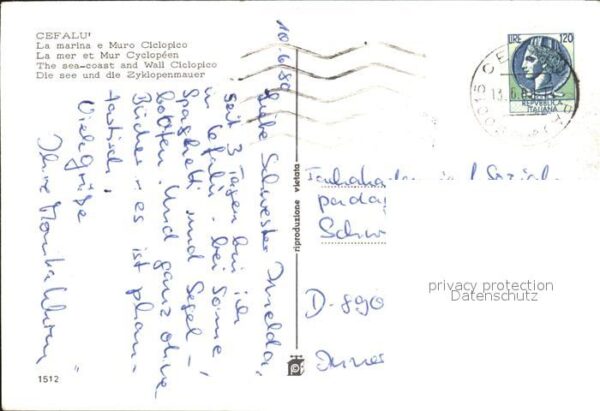 CEFALU'
La marina e Muro Ciclopico
La mer et Mur Cyclopéen
The sea-coast and Wall Ciclopico
Die see und die Zyklopenmauer
10.6.80
Liebe Schwester Imelda,
seit 3 Tagen bin ich
in Cefalù - bei Sonne,
Spaghetti und Segel-
booten. Und ganz ohne
Bücher - es ist phan-
tastisch!
Viele Grüße
Ihre Monika
1512
riproduzione vietata
LIRE 120
REPVBBLICA
ITALIANA
13.6.80
Sozial
pädag
Schw
D-890
privacy protection
Datenschutz